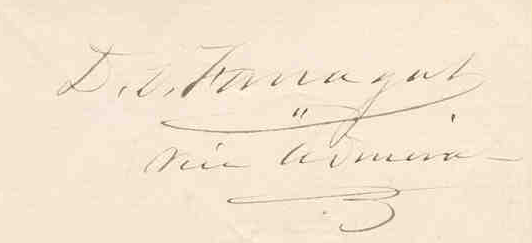 D. G. Farragut
Vice Admiral